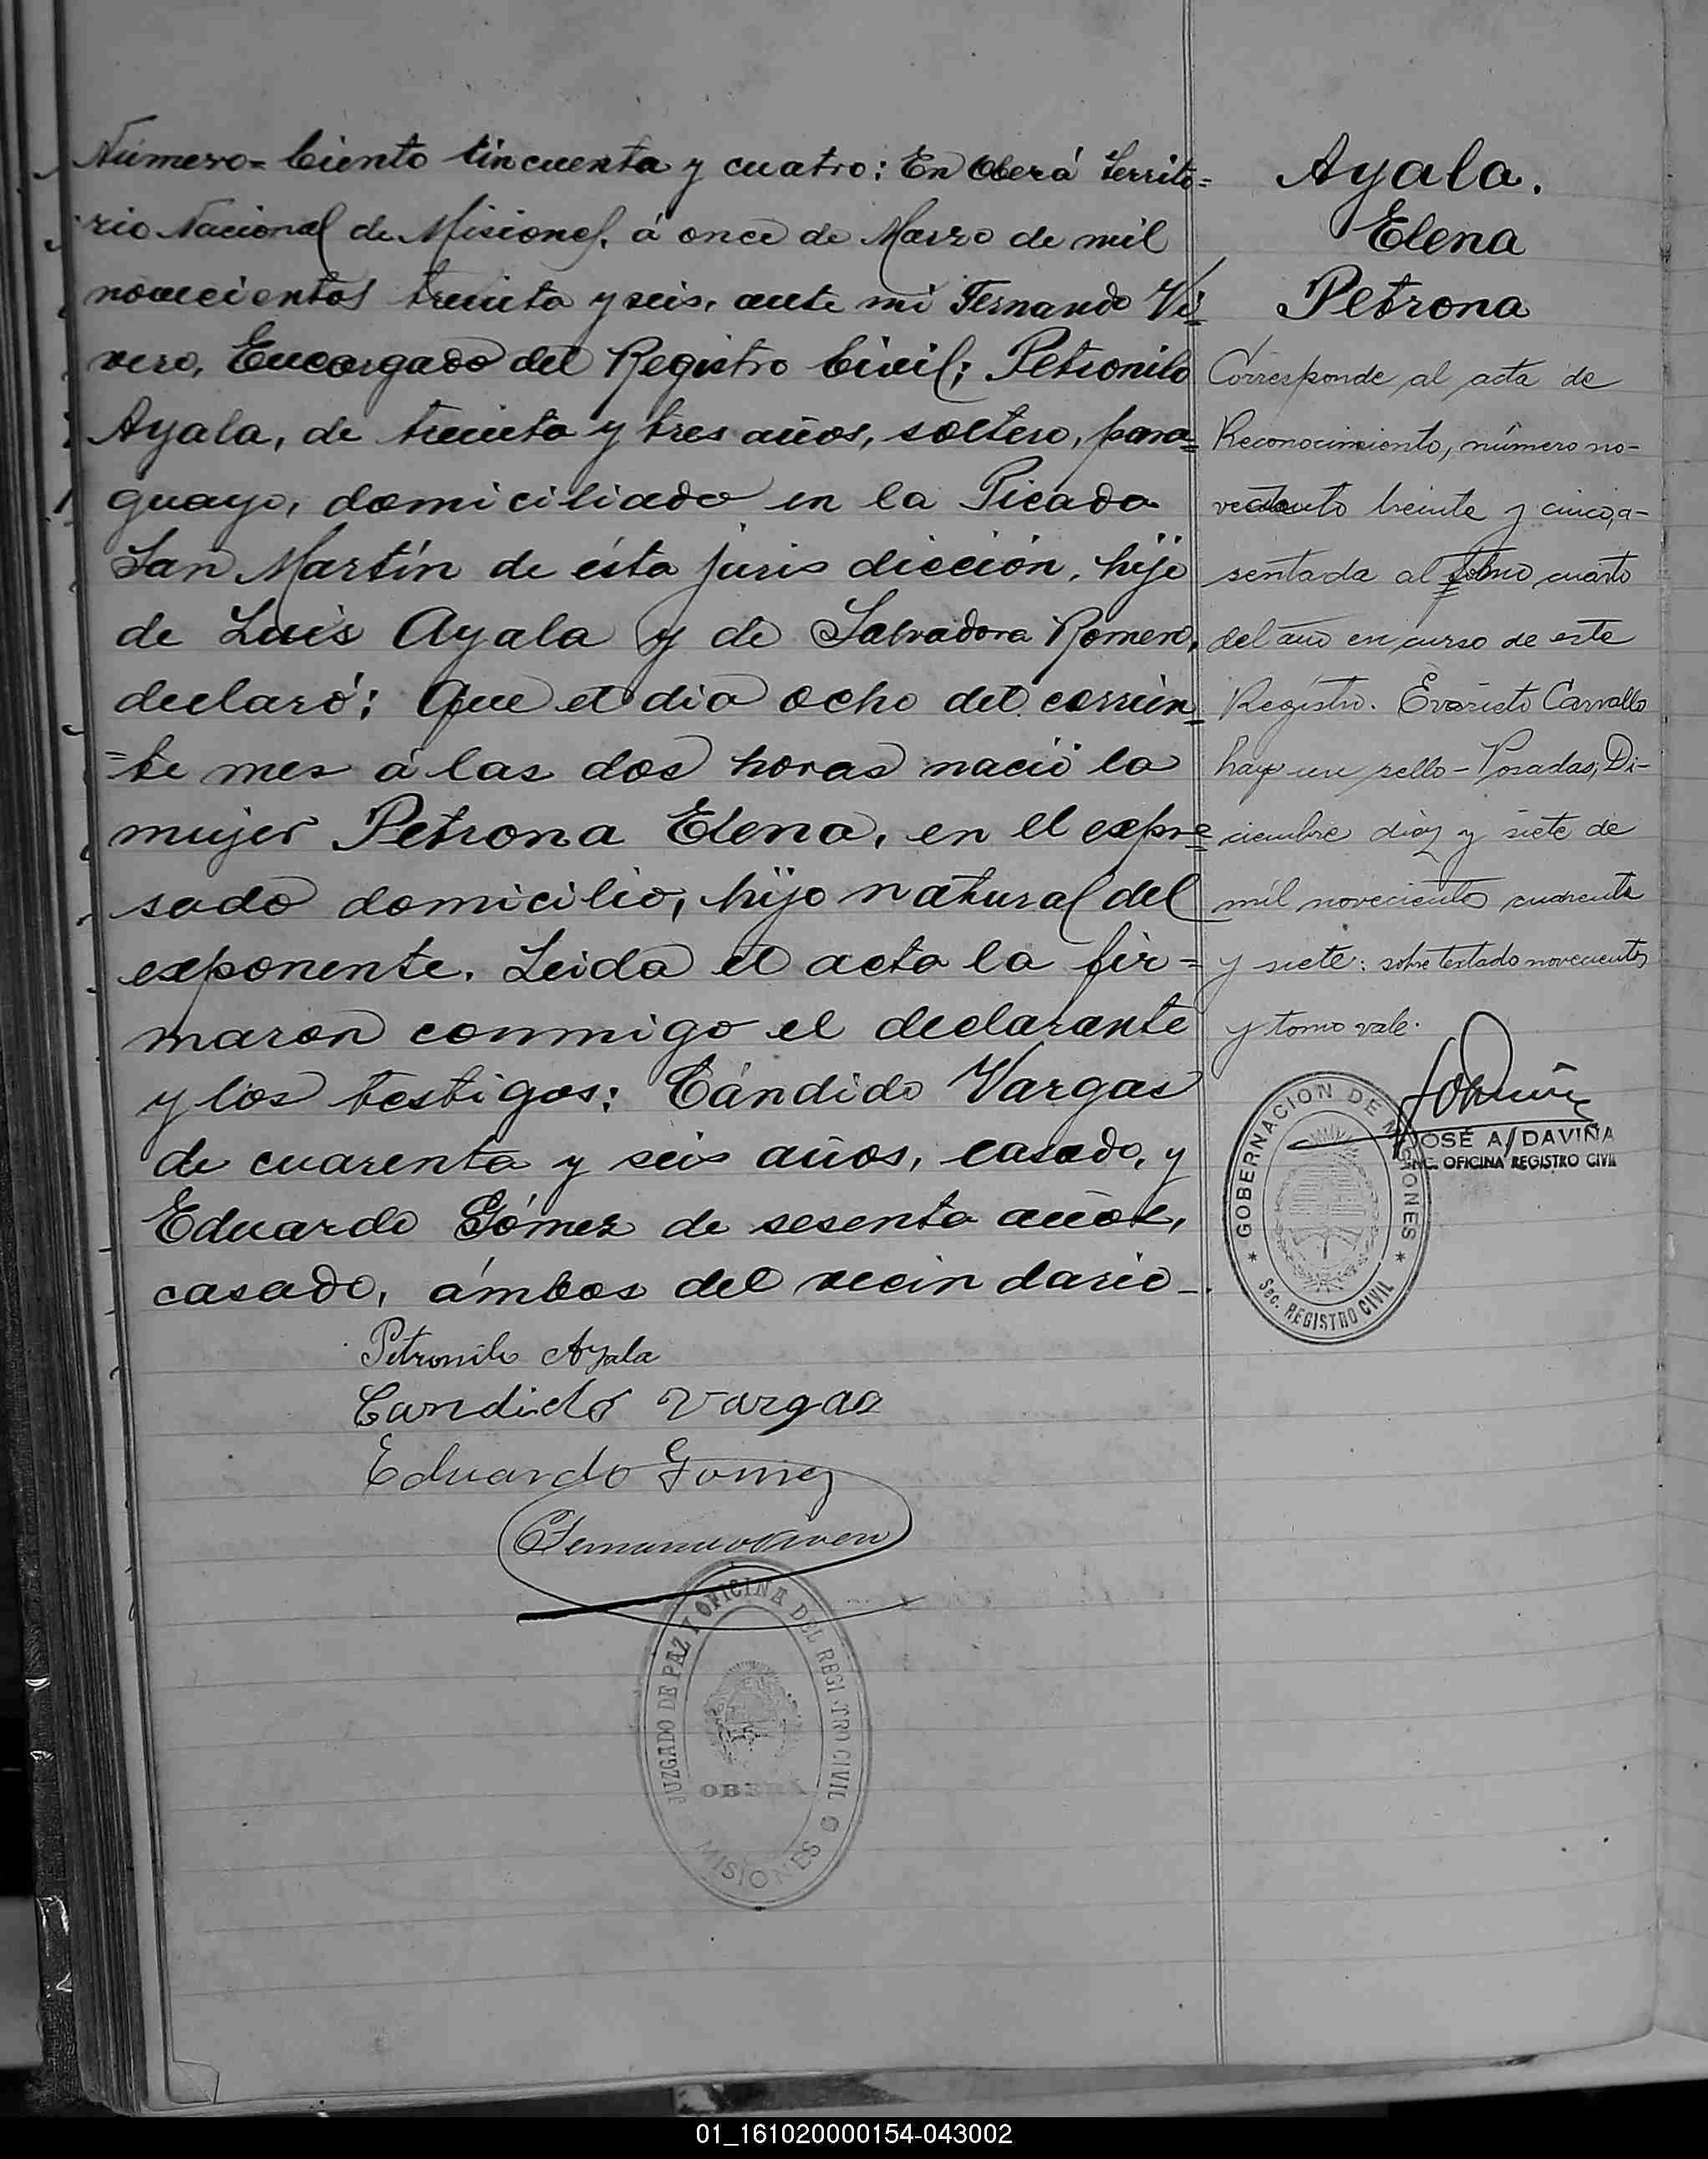 Número= Ciento Cincuenta y cuatro: En Oberá Territo=
rio Nacional de Misiones, á once de Marzo de mil
novecientos treinta y seis, ante mi Fernando Vi=
vero, Encargado del Registro Civil; Petronilo
Ayala, de treinta y tres años, soltero, para=
guayo, domiciliado en la Picada
San Martín de ésta jurisdicción, hijo
de Luis Ayala y de Salvadora Romero,
declaró: Que el día ocho del corrien=
=te mes á las dos horas nació la
mujer Petrona Elena, en el expre=
sado domicilio, hijo natural del
exponente. Leida el acta la fir=
maron conmigo el declarante
y los testigos: Cándido Vargas
de cuarenta y seis años, casado, y
Eduardo Gómez de sesenta años,
casado, ámbos del vecindario-.
Petronilo Ayala
Candido Vargas
Eduardo Gomez
Fernando Vivero
JUZGADO DE PAZ Y OFICINA DEL REGISTRO CIVIL
OBERÁ
MISIONES
Ayala.
Elena
Petrona
Corresponde al acta de
Reconocimiento, número no-
veciento treinta y cinco, a-
sentada al tomo cuarto
del año en curso de este
Registro. Evaristo Carvallo
hay un sello - Posadas, Di-
ciembre diez y siete de
mil novecientos cuarenta
y siete: sobre testado novecientos
y tomo vale.
JOSÉ A. DAVIÑA
ENC. OFICINA REGISTRO CIVIL
GOBERNACION DE MISIONES
Sec. REGISTRO CIVIL
01_161020000154-043002